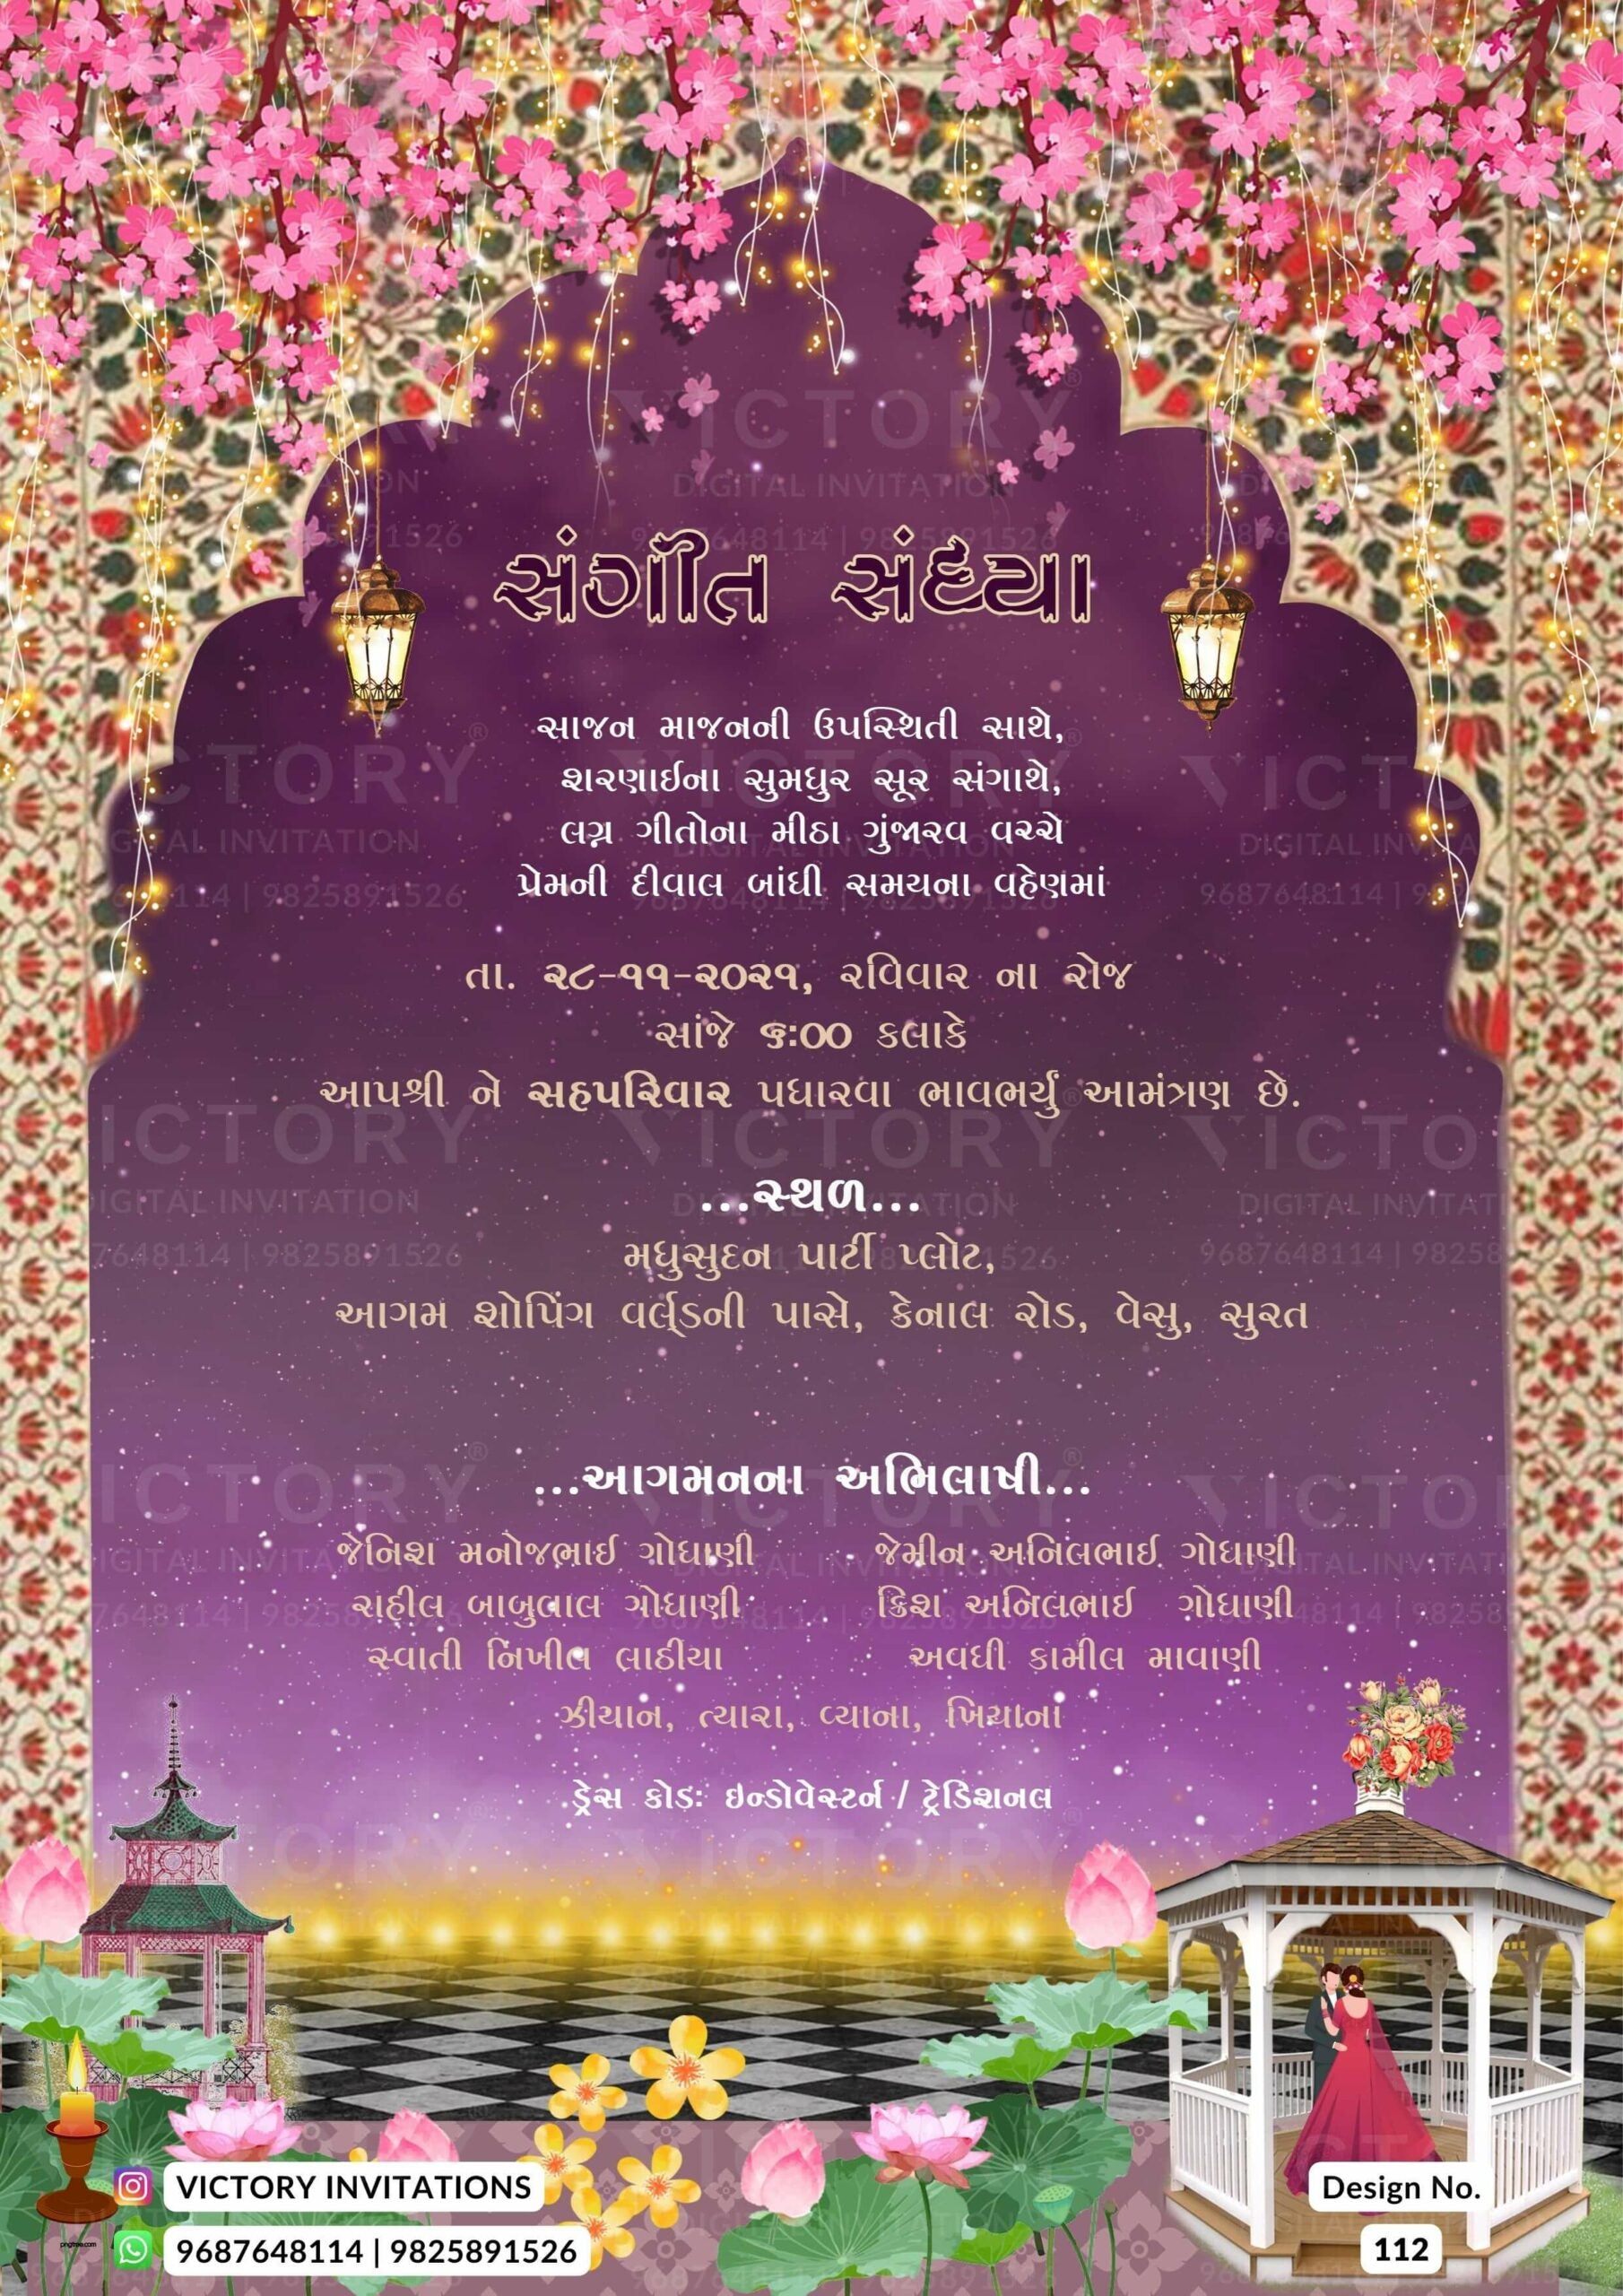 સંગીત સંધ્યા
સાજન માજનની ઉપસ્થિતી સાથે,
શરણાઈના સુમધુર સૂર સંગાથે,
લગ્ન ગીતોના મીઠા ગુંજારવ વચ્ચે
પ્રેમની દીવાલ બાંધી સમયના વહેણમાં
તા. ૨૮-૧૧-૨૦૨૧, રવિવાર ના રોજ
સાંજે ૬:૦૦ કલાકે
આપશ્રી ને સહપરિવાર પધારવા ભાવભર્યું આમંત્રણ છે.
...સ્થળ...
મધુસુદન પાર્ટી પ્લોટ,
આગમ શોપિંગ વર્લ્ડની પાસે, કેનાલ રોડ, વેસુ, સુરત
...આગમનના અભિલાષી...
જેનિશ મનોજભાઈ ગોધાણી જેમીન અનિલભાઈ ગોધાણી
રાહીલ બાબુલાલ ગોધાણી ક્રિશ અનિલભાઈ ગોધાણી
સ્વાતી નિખીલ લાઠીયા અવધી કામીલ માવાણી
ઝીયાન, ત્યારા, વ્યાના, ખિયાના
ડ્રેસ કોડ: ઇન્ડોવેસ્ટર્ન / ટ્રેડિશનલ
VICTORY INVITATIONS
9687648114 | 9825891526
Design No.
112
VICTORY
DIGITAL INVITATION
9687648114 | 9825891526
pngtree.com